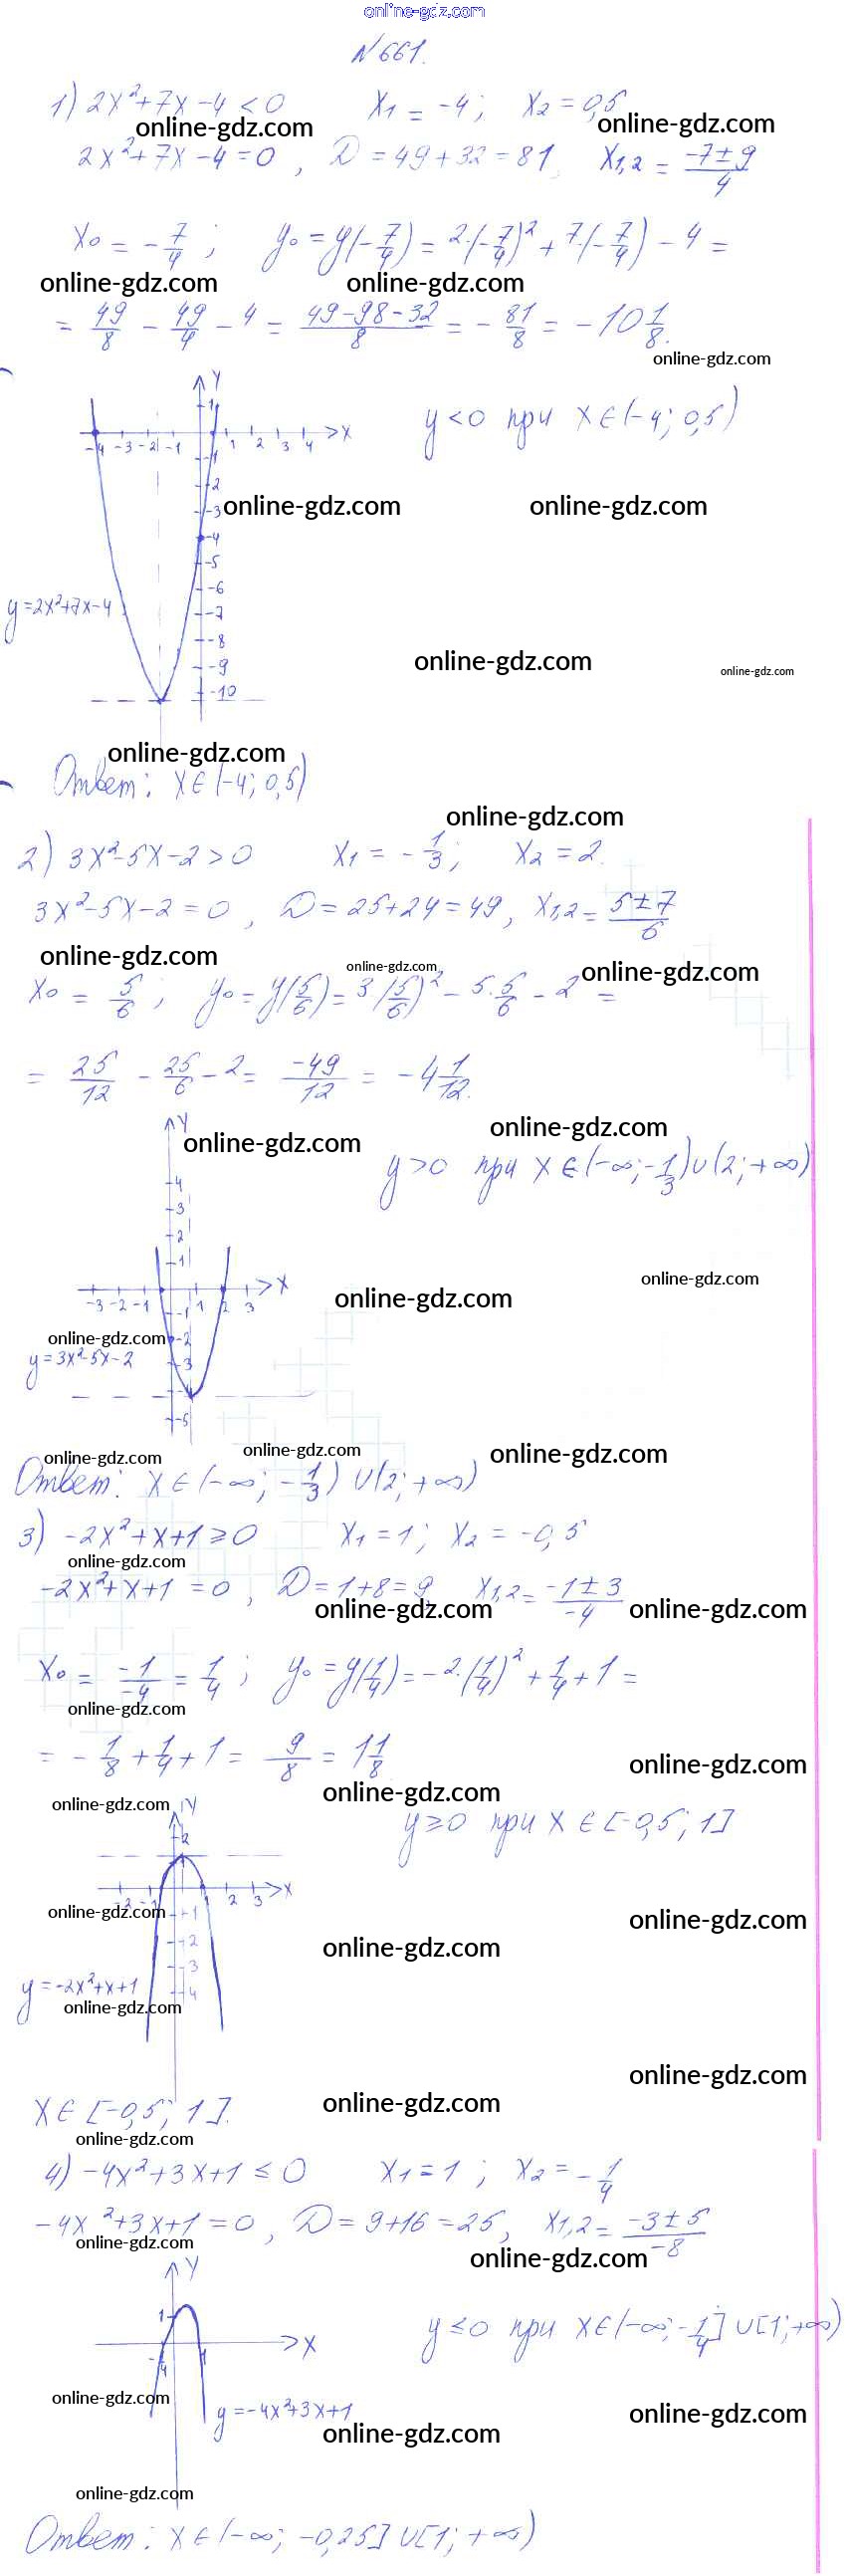 online-gdz.com
N 661.
1) 2x²+7x-4<0   x₁ = -4;   x₂ = 0,5
online-gdz.com   online-gdz.com
2x²+7x-4=0, D = 49+32=81, x₁,₂ = (-7±9)/4
x₀ = -7/4; y₀ = y(-7/4) = 2·(-7/4)² + 7·(-7/4) - 4 =
online-gdz.com   online-gdz.com
= 49/8 - 49/4 - 4 = (49-98-32)/8 = -81/8 = -10 1/8.
online-gdz.com
Y
1
X
-4 -3 -2 -1 1 2 3 4
y<0 при x∈(-4; 0,5)
-1
-2
-3
online-gdz.com   online-gdz.com
-4
-5
-6
y=2x²+7x-4
-7
-8
-9
-10
online-gdz.com   online-gdz.com
online-gdz.com
Ответ: x∈(-4; 0,5)
online-gdz.com
2) 3x²-5x-2>0   x₁ = -1/3;   x₂ = 2.
3x²-5x-2=0, D = 25+24=49, x₁,₂ = (5±7)/6
online-gdz.com   online-gdz.com   online-gdz.com
x₀ = 5/6; y₀ = y(5/6) = 3(5/6)² - 5·5/6 - 2 =
= 25/12 - 25/6 - 2 = -49/12 = -4 1/12.
Y
online-gdz.com   online-gdz.com
y>0 при x∈(-∞; -1/3)∪(2; +∞)
4
3
2
1
X
-3 -2 -1 1 2 3
-1
online-gdz.com   online-gdz.com
online-gdz.com
-2
y=3x²-5x-2
-3
-5
online-gdz.com   online-gdz.com   online-gdz.com
Ответ: x∈(-∞; -1/3)∪(2; +∞)
3) -2x²+x+1≥0   x₁=1; x₂ = -0,5
online-gdz.com
-2x²+x+1=0, D=1+8=9, x₁,₂ = (-1±3)/-4
online-gdz.com   online-gdz.com
x₀ = -1/-4 = 1/4; y₀ = y(1/4) = -2·(1/4)² + 1/4 + 1 =
online-gdz.com
= -1/8 + 1/4 + 1 = 9/8 = 1 1/8
online-gdz.com
online-gdz.com   online-gdz.com
Y
y≥0 при x∈[-0,5; 1]
2
X
-2 -1 2 3
online-gdz.com   online-gdz.com
-1
-2
online-gdz.com
-3
y=-2x²+x+1
-4
online-gdz.com
online-gdz.com
x∈[-0,5; 1].
online-gdz.com
online-gdz.com
4) -4x²+3x+1≤0   x₁=1; x₂=-1/4
-4x²+3x+1=0, D=9+16=25, x₁,₂ = (-3±5)/-8
online-gdz.com   online-gdz.com
Y
1
y≤0 при x∈(-∞; -1/4]∪[1; +∞)
X
-1/4 1
online-gdz.com   online-gdz.com
y=-4x²+3x+1
online-gdz.com
online-gdz.com
Ответ: x∈(-∞; -0,25]∪[1; +∞)